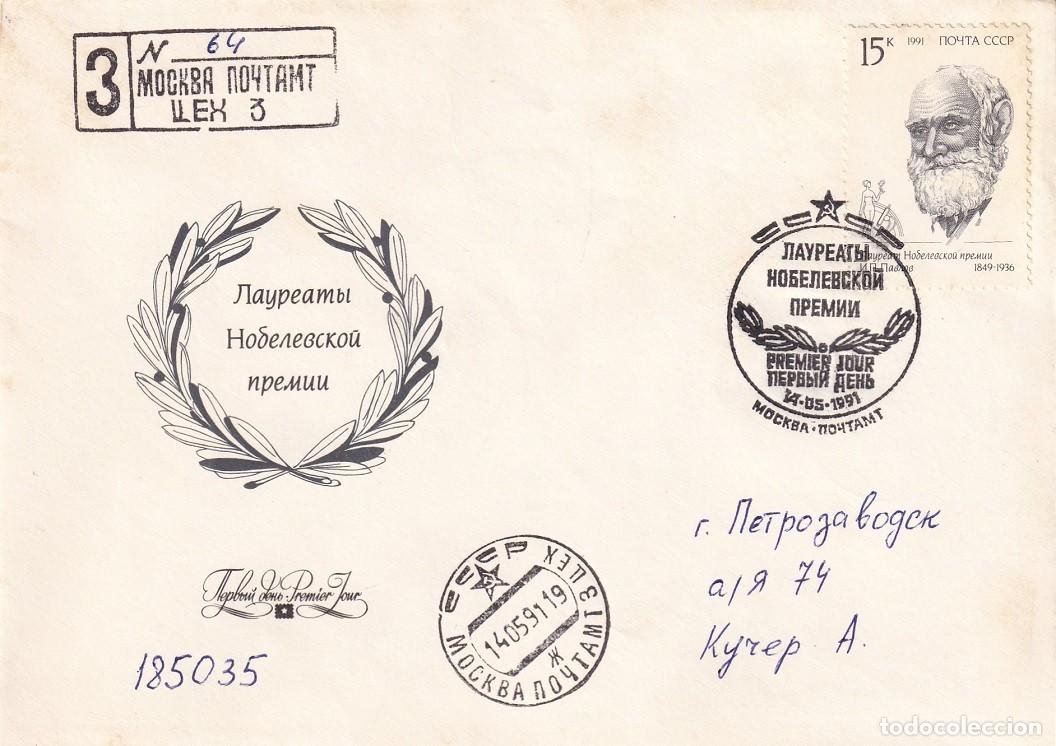 3
N 64
МОСКВА ПОЧТАМТ
ЦЕХ 3
15к 1991 ПОЧТА СССР
Лауреат Нобелевской премии
И.П. Павлов 1849-1936
ЛАУРЕАТЫ
НОБЕЛЕВСКОЙ
ПРЕМИИ
PREMIER JOUR
ПЕРВЫЙ ДЕНЬ
14·05·1991
МОСКВА·ПОЧТАМТ
Лауреаты
Нобелевской
премии
г. Петрозаводск
а/Я 74
Кучер А.
Первый день Premier Jour
СССР
МОСКВА ПОЧТАМТ 3 ЦЕХ
14059119
Ж
185035
todocoleccion